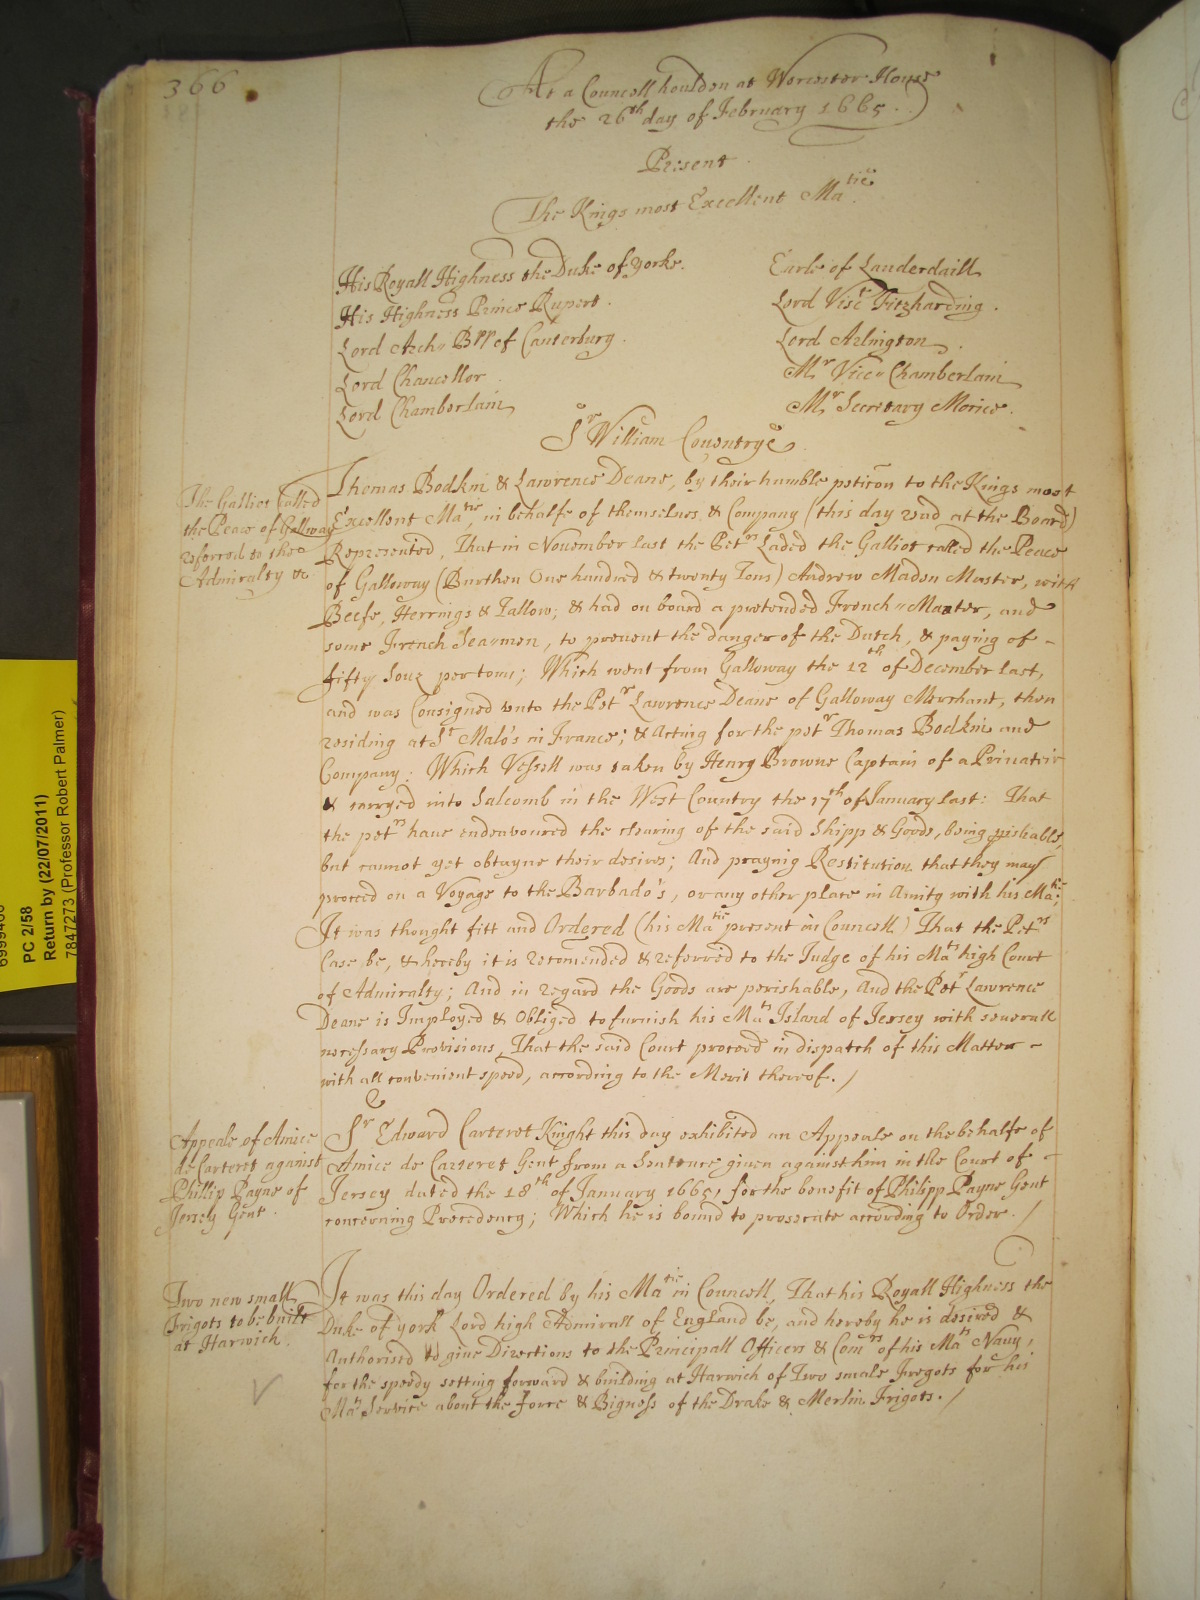 366
At a Councell houlden at Worcester House
the 26th day of February 1665.
Present
The Kings most Excellent Matie.
His Royall Highness the Duke of Yorke.
His Highness Prince Rupert.
Lord Arch: Bpp of Canterbury.
Lord Chancellor
Lord Chamberlain
Earle of Lauderdaill
Lord Visct Fitzharding.
Lord Arlington.
Mr Vice-Chamberlain
Mr Secretary Morice.
Sr William Couentrye
The Galliot called
the Peace of Galloway
referred to the
Admiralty &c
Thomas Bodkin & Lawrence Deane, by their humble petiton to the Kings most
Excellent Matie, in behalfe of themselues & Company (this day read at the Board)
Represented, That in November last the Petrs Laded the Galliot called the Peace
of Galloway (Burthen One hundred & twenty Tons) Andrew Maden Master, with
Beefe, Herrings & Tallow; & had on board a pretended French-Master, and
some French Sea-men, to prevent the danger of the Dutch, & paying of -
fifty Souz per tonn; Which went from Galloway the 12th of December last,
and was Consigned vnto the Petr Lawrence Deane of Galloway Merchant, then
residing at St Malo's in France; & Acting for the petr Thomas Bodkin and
Company: Which Vessell was taken by Henry Browne Captain of a Privateir
& carryed into Salcomb in the West Country the 17th of January last: That
the petrs have endeavoured the clearing of the said Shipp & Goods, being pishable,
but cannot yet obtayne their desires; And praying Restitution that they may
proceed on a Voyage to the Barbado's, or any other place in Amity with his Matie;
It was thought fitt and Ordered (his Matie present in Councell) That the Petrs
Case be, & hereby it is recomended & referred to the Judge of his Mats high Court
of Admiralty; And in regard the Goods are perishable, And the Petr Lawrence
Deane is Imployed & Obliged to furnish his Mats Island of Jersey with seuerall
necessary Provisions, That the said Court proceed in dispatch of this Matter -
with all convenient speed, according to the Merit thereof. /
Appeale of Amice
de Carteret against
Phillip Payne of
Jersey Gent.
Sr Edward Carteret Knight this day exhibited an Appeale on the behalfe of
Amice de Carteret Gent from a Sentence given against him in the Court of -
Jersey dated the 18th of January 1665, for the benefit of Philipp Payne Gent
concerning Precedency; Which he is bound to prosecute according to Order. /
Two new small
Frigots to be built
at Harwich
It was this day Ordered by his Matie in Councell, That his Royall Highness the
Duke of York Lord high Admirall of England be, and hereby he is desired &
Authorised to give Directions to the Principall Officers & Comrs of his Mats Navy,
for the speedy setting forward & building at Harwich of Two smale Fregots for his
Mats Service about the Force & Bigness of the Drake & Merlin Frigots. /
PC 2/58
Return by (22/07/2011)
7847273 (Professor Robert Palmer)